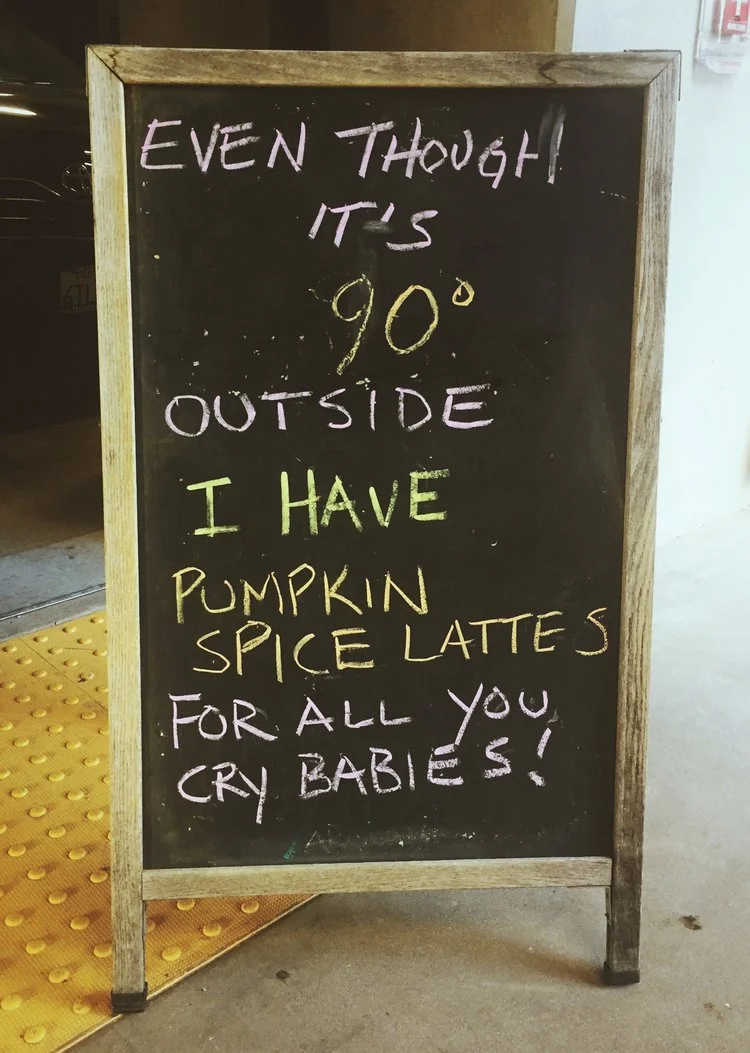 EVEN THOUGH
IT'S
90°
OUTSIDE
I HAVE
PUMPKIN
SPICE LATTES
FOR ALL YOU
CRY BABIES!